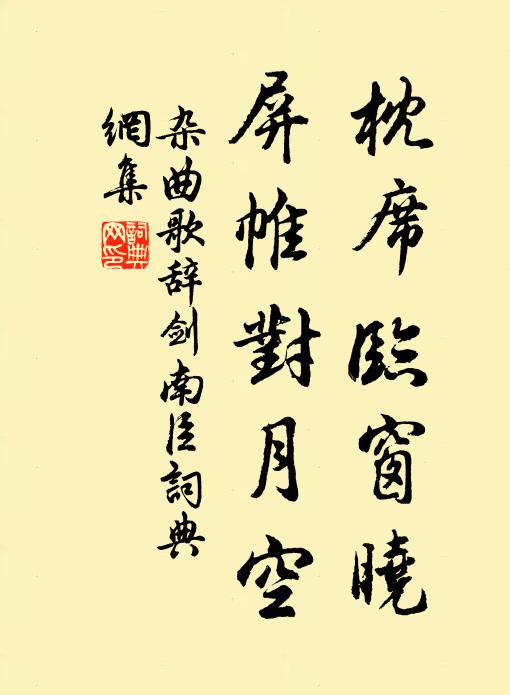 枕席臨窗曉
屏帷對月空
杂曲歌辞剑南臣詞典
網集
詞典
网印